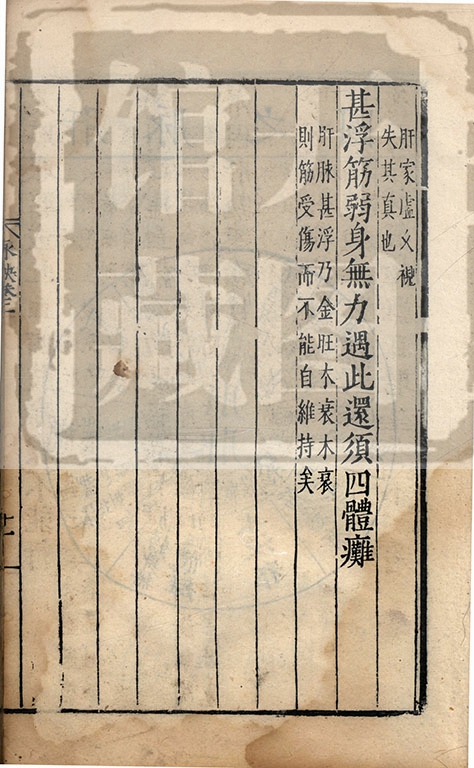 肝家虛又視
失其真也
甚浮筋弱身無力遇此還須四體癱
肝脉甚浮乃金旺木衰木衰
則筋受傷而不能自維持矣
十一